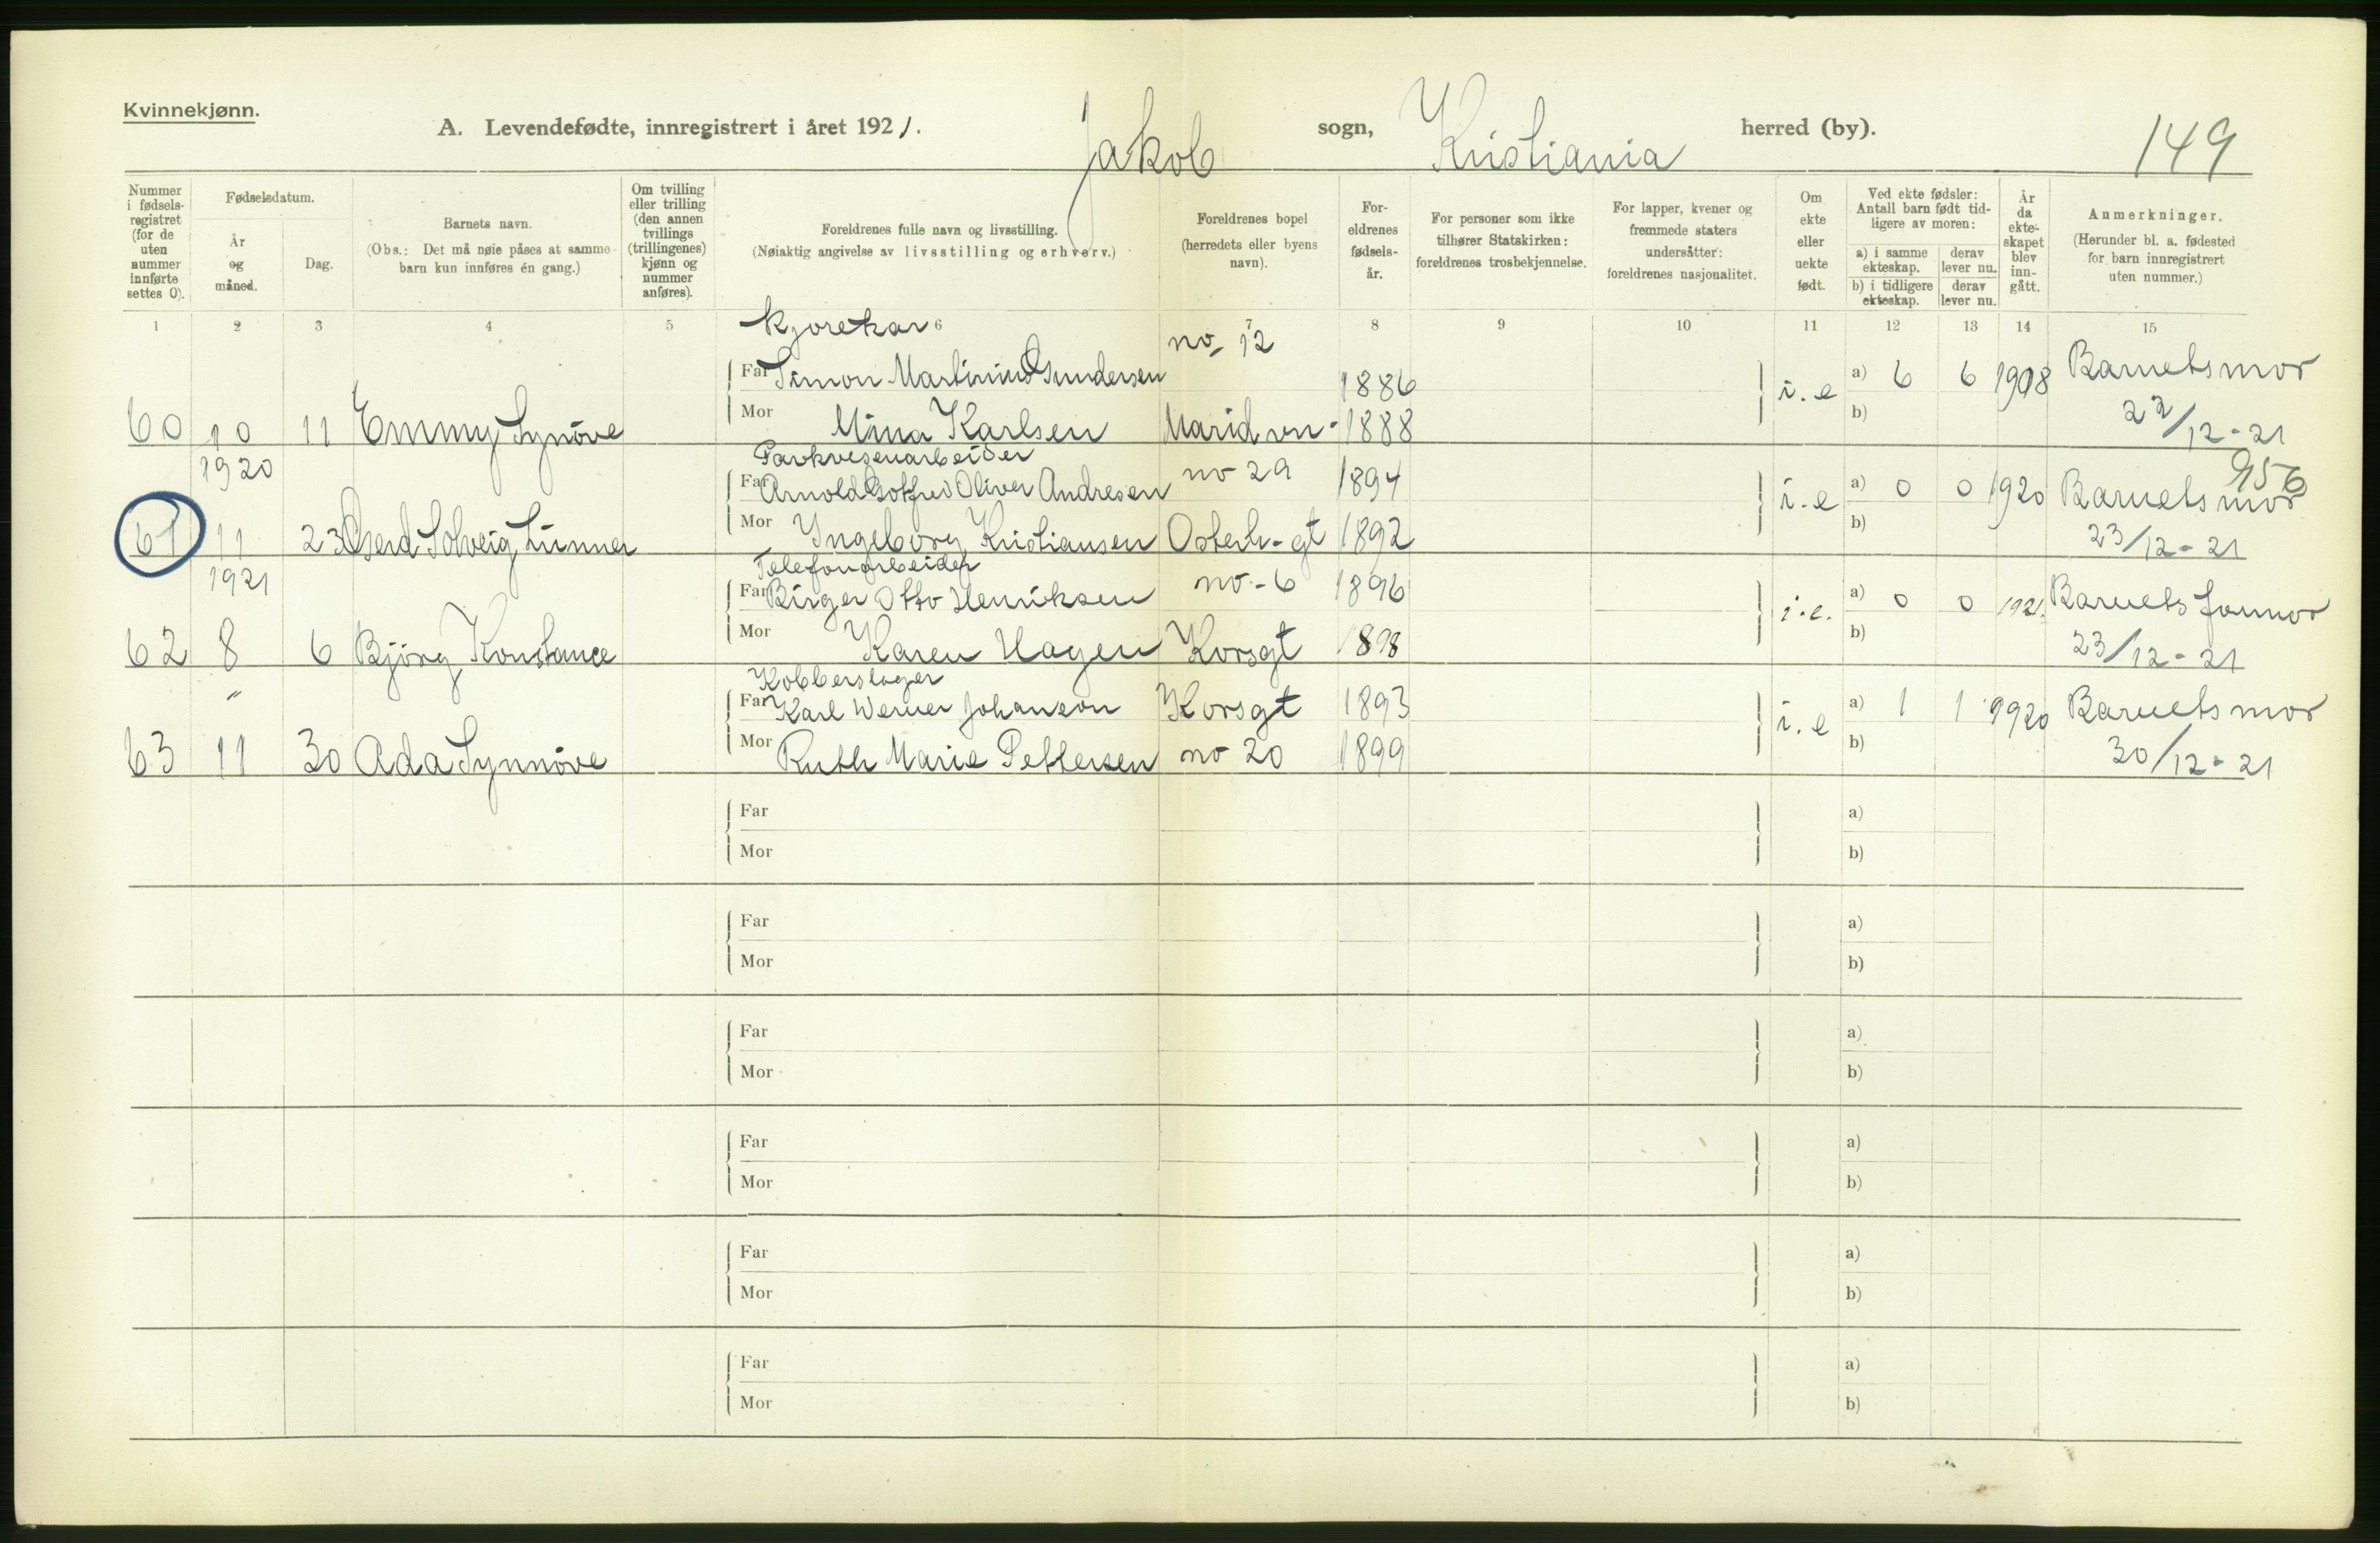 Kvinnekjønn.
A. Levendefødte, innregistrert i året 1921. Jakob sogn, Kristiania herred (by). 149
Nummer i fødsels-registret (for de uten nummer innførte settes 0).
Fødselsdatum.
År og måned.
Dag.
Barnets navn.
(Obs.: Det må nøie påses at samme barn kun innføres én gang.)
Om tvilling eller trilling (den annen tvillings (trillingenes) kjønn og nummer anføres).
Foreldrenes fulle navn og livsstilling.
(Nøiaktig angivelse av livsstilling og erhverv.)
Foreldrenes bopel (herredets eller byens navn).
For-eldrenes fødsels-år.
For personer som ikke tilhører Statskirken: foreldrenes trosbekjennelse.
For lapper, kvener og fremmede staters undersåtter: foreldrenes nasjonalitet.
Om ekte eller uekte født.
Ved ekte fødsler: Antall barn født tid-ligere av moren:
a) i samme ekteskap. derav lever nu.
b) i tidligere ekteskap. derav lever nu.
År da ekte-skapet blev inn-gått.
Anmerkninger.
(Herunder bl. a. fødested for barn innregistrert uten nummer.)
1 2 3 4 5 6 7 8 9 10 11 12 13 14 15
Kjørekar no 12
Far Simon Martinius Gundersen 1886 i.e a) 6 6 1908 Barnets mor
60 10 11 Emmy Synøve Mor Mina Karlsen Maridvn- 1888 b) 22/12-21
1920 Parkvesenarbeider 956
Far Arnold Gotfred Oliver Andresen no 29 1894 i.e a) 0 0 1920 Barnets mor
61 11 23 Gerd Solveig Lunner Mor Ingeborg Kristiansen Osterh-gt 1892 b) 23/12-21
1921 Telefonarbeider
Far Birger Otto Henriksen no-6 1896 i.e. a) 0 0 1921. Barnets formor
62 8 6 Bjørg Konstance Mor Karen Hagen Korsgt 1898 b) 23/12-21
" Kobberslager
Far Karl Werner Johanson Korsgt 1893 i.e a) 1 1 1920 Barnets mor
63 11 30 Ada Synnøve Mor Ruth Marie Pettersen no 20 1899 b) 30/12-21
Far a)
Mor b)
Far a)
Mor b)
Far a)
Mor b)
Far a)
Mor b)
Far a)
Mor b)
Far a)
Mor b)